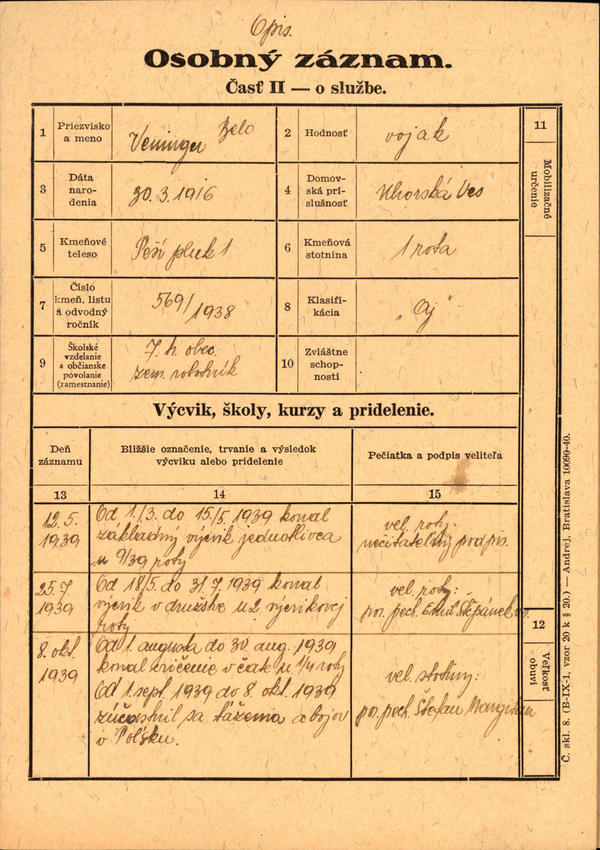 Opis.
Osobný záznam.
Časť II — o službe.
1 Priezvisko a meno Veninger Belo
2 Hodnosť vojak
3 Dáta narodenia 30.3.1916
4 Domovská príslušnosť Uhorská Ves
5 Kmeňové teleso Peší pluk 1
6 Kmeňová stotnina 1 rota
7 Číslo kmeň. listu a odvodný ročník 569/1938
8 Klasifikácia „A"
9 Školské vzdelanie a občianske povolanie (zamestnanie) 7. h. obec. zem. robotník
10 Zvláštne schopnosti
11 Mobilizačné určenie
Výcvik, školy, kurzy a pridelenie.
Deň záznamu
Bližšie označenie, trvanie a výsledok výcviku alebo pridelenie
Pečiatka a podpis veliteľa
13 14 15
12.5. 1939
Od 1./3. do 15/5. 1939 konal
základný výcvik jednotlivca
u 9/39 roty
vel. roty:
nečitateľný podpis.
25.7. 1939
Od 18/5. do 31/7. 1939 konal
výcvik v družstve u 2 výcvikovej
roty
vel. roty:
por. pech. Emil Štěpánek v.
8. okt. 1939
Od 1. augusta do 30. aug. 1939
konal cvičenie v čate u 1/4 roty
Od 1. sept. 1939 do 8. okt. 1939
zúčastnil sa ťaženia a bojov
v Poľsku.
vel. stotiny:
por. pech. Štefan Margitan
12 Veľkosť obuvi
Č. skl. 8. (B-IX-1, vzor 20 k § 20.) — Andrej, Bratislava 10090-40.